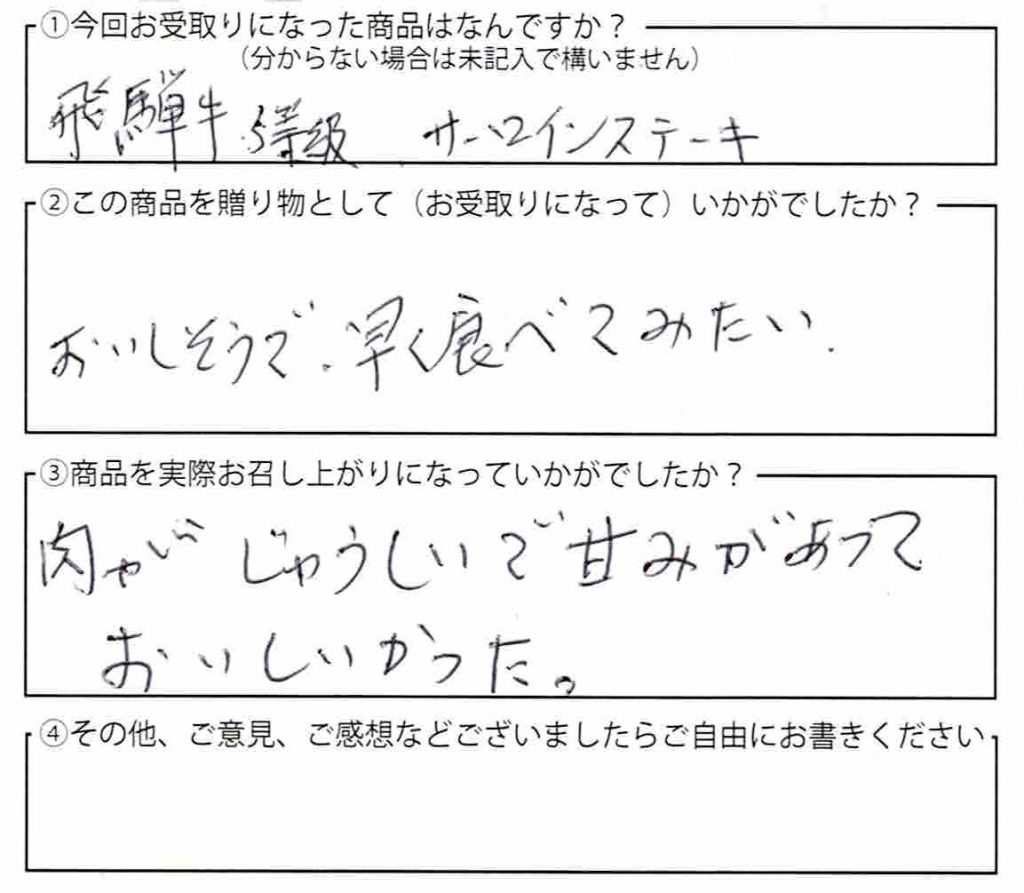 ①今回お受取りになった商品はなんですか？
（分からない場合は未記入で構いません）
飛騨牛 5等級 サーロインステーキ
②この商品を贈り物として（お受取りになって）いかがでしたか？
おいしそうで、早く食べてみたい.
③商品を実際お召し上がりになっていかがでしたか？
肉が じゅうしいで甘みがあって
おいしいかった。
④その他、ご意見、ご感想などございましたらご自由にお書きください